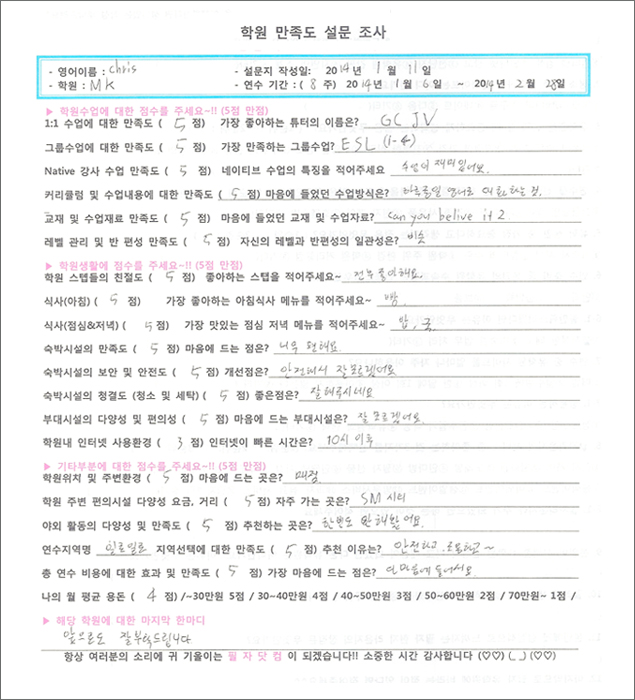 학원 만족도 설문 조사
- 영어이름 : chris - 설문지 작성일: 2014년 1월 11일
- 학원 : MK - 연수 기간 : ( 8 주) 2014년 1월 6일 ~ 2014년 2월 28일
▶ 학원수업에 대한 점수를 주세요~!! (5점 만점)
1:1 수업에 대한 만족도 ( 5 점) 가장 좋아하는 튜터의 이름은? GC JV
그룹수업에 대한 만족도 ( 5 점) 가장 만족하는 그룹수업? ESL (1-4)
Native 강사 수업 만족도 ( 5 점) 네이티브 수업의 특징을 적어주세요 수업이 재미있어요.
커리큘럼 및 수업내용에 대한 만족도 ( 5 점) 마음에 들었던 수업방식은? 하루종일 영어로 대화하는 것.
교재 및 수업재료 만족도 ( 5 점) 마음에 들었던 교재 및 수업자료? can you belive it 2
레벨 관리 및 반 편성 만족도 ( 5 점) 자신의 레벨과 반편성의 일관성은? 비슷
▶ 학원생활에 점수를 주세요~!! (5점 만점)
학원 스텝들의 친절도 ( 5 점) 좋아하는 스텝을 적어주세요~ 전부 좋아해요.
식사(아침) ( 5 점) 가장 좋아하는 아침식사 메뉴를 적어주세요~ 빵.
식사(점심&저녁) ( 5 점) 가장 맛있는 점심 저녁 메뉴를 적어주세요~ 밥, 국.
숙박시설의 만족도 ( 5 점) 마음에 드는 점은? 너무 편해요.
숙박시설의 보안 및 안전도 ( 5 점) 개선점은? 안전해서 잘 모르겠어요
숙박시설의 청결도 (청소 및 세탁) ( 5 점) 좋은점은? 잘해주시네요
부대시설의 다양성 및 편의성 ( 5 점) 마음에 드는 부대시설은? 잘 모르겠어요.
학원내 인터넷 사용환경 ( 3 점) 인터넷이 빠른 시간은? 10시 이후
▶ 기타부분에 대한 점수를 주세요~!! (5점 만점)
학원위치 및 주변환경 ( 5 점) 마음에 드는 곳은? 매점
학원 주변 편의시설 다양성 요금, 거리 ( 5 점) 자주 가는 곳은? SM 시티
야외 활동의 다양성 및 만족도 ( 5 점) 추천하는 곳은? 한번도 안해봤어요.
연수지역명 일로일로 지역선택에 대한 만족도 ( 5 점) 추천 이유는? 안전하고 조용하고~
총 연수 비용에 대한 효과 및 만족도 ( 5 점) 가장 마음에 드는 점은? 다 마음에 들어서요.
나의 월 평균 용돈 ( 4 점) /~30만원 5점 / 30~40만원 4점 / 40~50만원 3점 / 50~60만원 2점 / 70만원~ 1점 /
▶ 해당 학원에 대한 마지막 한마디
앞으로도 잘부탁드립니다
항상 여러분의 소리에 귀 기울이는 필 자 닷 컴 이 되겠습니다!! 소중한 시간 감사합니다 (♡♡) (_ _) (♡♡)